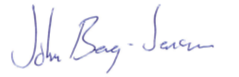 John Bang-Jensen